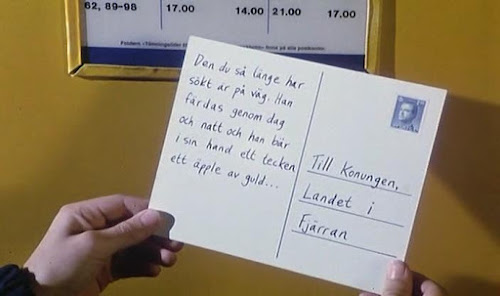 62, 89-98 17.00 14.00 21.00 17.00
på alla postkontor.
Den du så länge har
sökt är på väg. Han
färdas genom dag
och natt och han bär
i sin hand ett tecken
ett äpple av guld...
Till Konungen,
Landet i
Fjärran